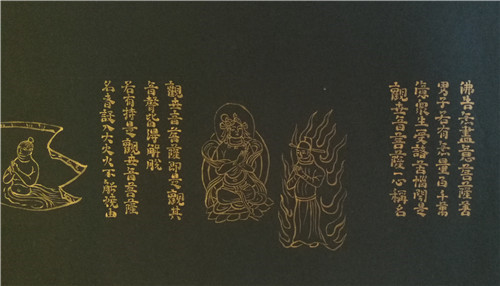 佛告无盡意菩薩善
男子若有无量百千萬
億眾生受諸苦惱聞是
觀世音菩薩一心稱名
觀世音菩薩即是觀其
音聲皆得解脫
若有持是觀世音菩薩
名者設入大火火不能燒由